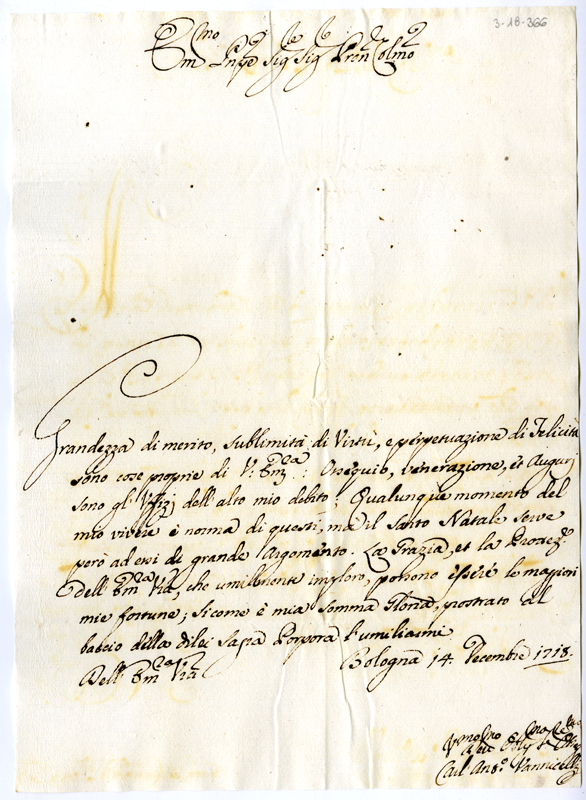 3-18-366
Em.mo Pnpe Sig.re Sig.re Pron Colmo
Grandezza di merito, sublimità di Virtù, e perpetuazione di Felicità
sono cose proprie di V. Emza: Ossequio, venerazione, et Augurj
sono gl'Uffizj dell'alto mio debito; Qualunque momento del
mio vivere è norma di questi, ma il Santo Natale serve
però ad essi di grande Argomento. La Grazia, et la Protez.e
dell'Emza Vra, che umilmente imploro, possono essere le maggiori
mie fortune; sicome è mia somma Gloria, prostrato al
baccio della di lei Sagra Porpora l'umiliarmi
Dell'Emza Vra
Bologna 14. Decembre 1718.
Carl'Ant.o Vannicelli